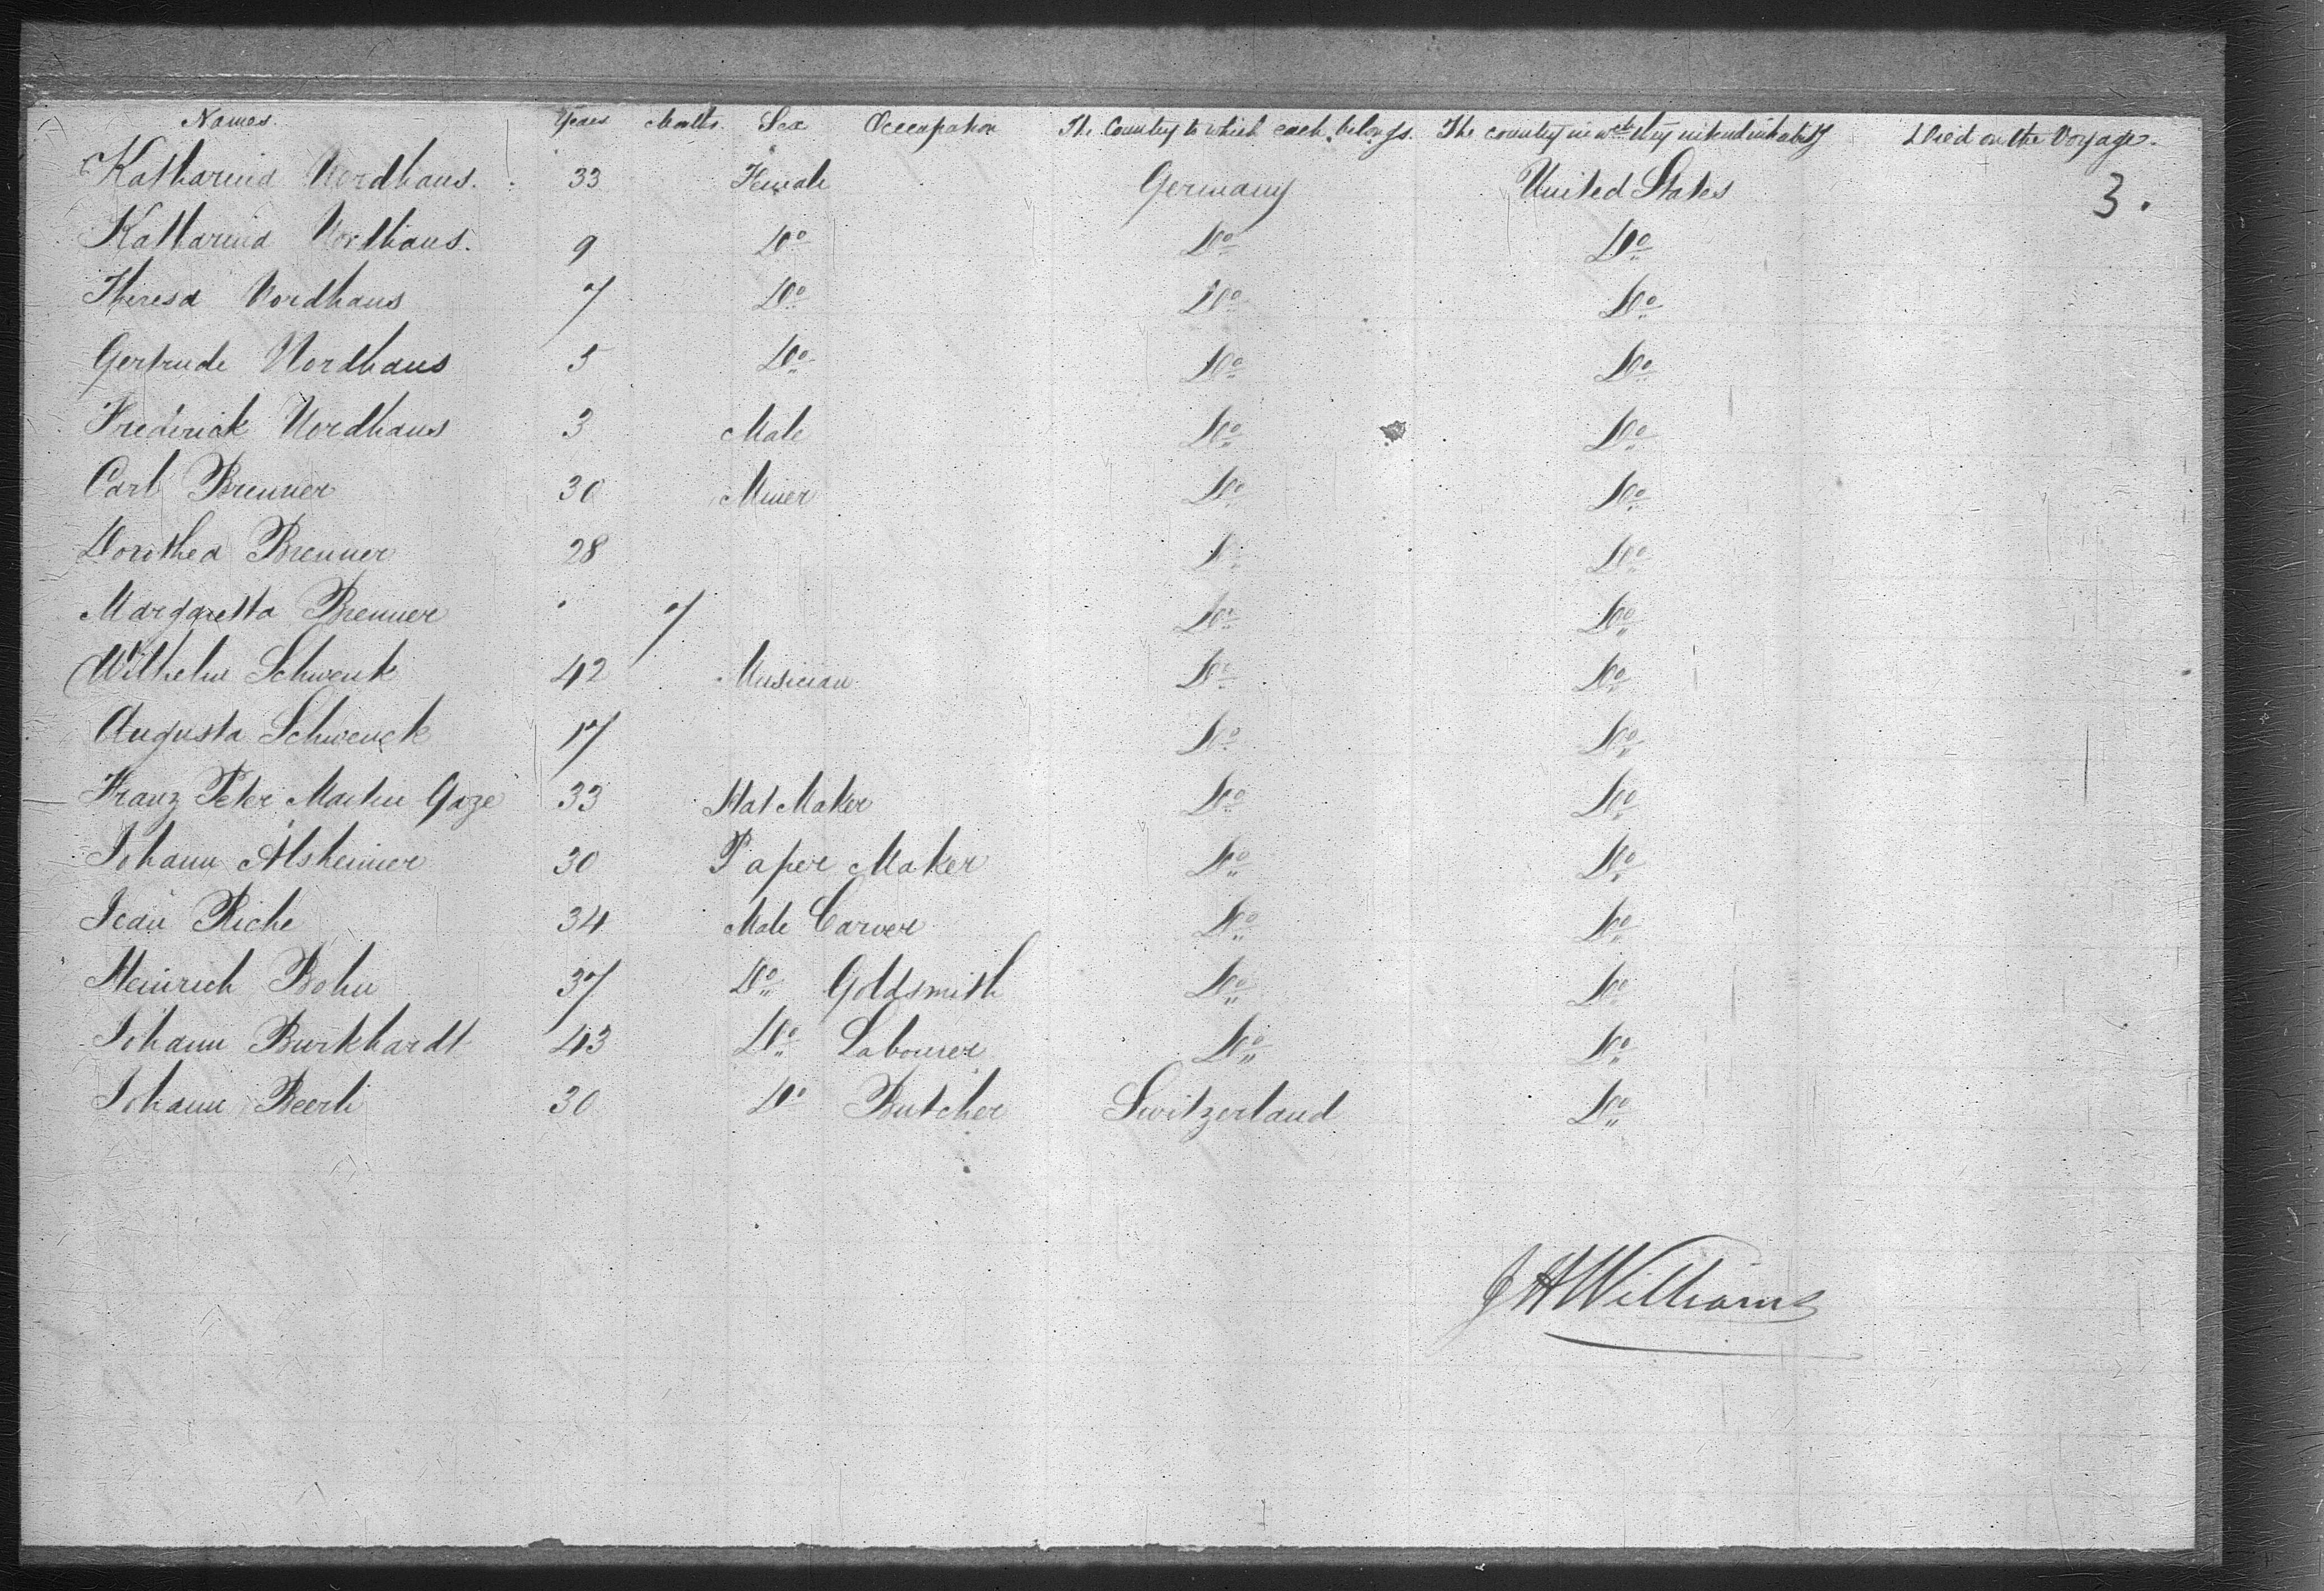 Names. Years Months. Sex Occcupation The Country to which each belongs. The country in wch they intend inhabitg Died on the Voyage.
Katharina Nordhaus. 33 Female Germany United States 3.
Katharina Nordhaus. 9 Do Do Do
Theresa Nordhaus 7 Do Do Do
Gertrude Nordhaus 5 Do Do Do
Frederick Nordhaus 3 Male Do Do
Carl Brenner 30 Miner Do Do
Dorothea Brenner 28 Do Do
Margaretta Brenner " 7 Do Do
Wilhelm Schwenk 42 Musician Do Do
Augusta Schwenck 17 Do Do
Franz Peter Martin Goze 33 Hat Maker Do Do
Johann Alsheimer 30 Paper Maker Do Do
Jean Riche 34 Male Carver Do Do
Heinrich Bohn 37 Do Goldsmith Do Do
Johann Burkhardt 43 Do Labourer Do Do
Johann Beerli 30 Do Butcher Switzerland Do
J H Williams